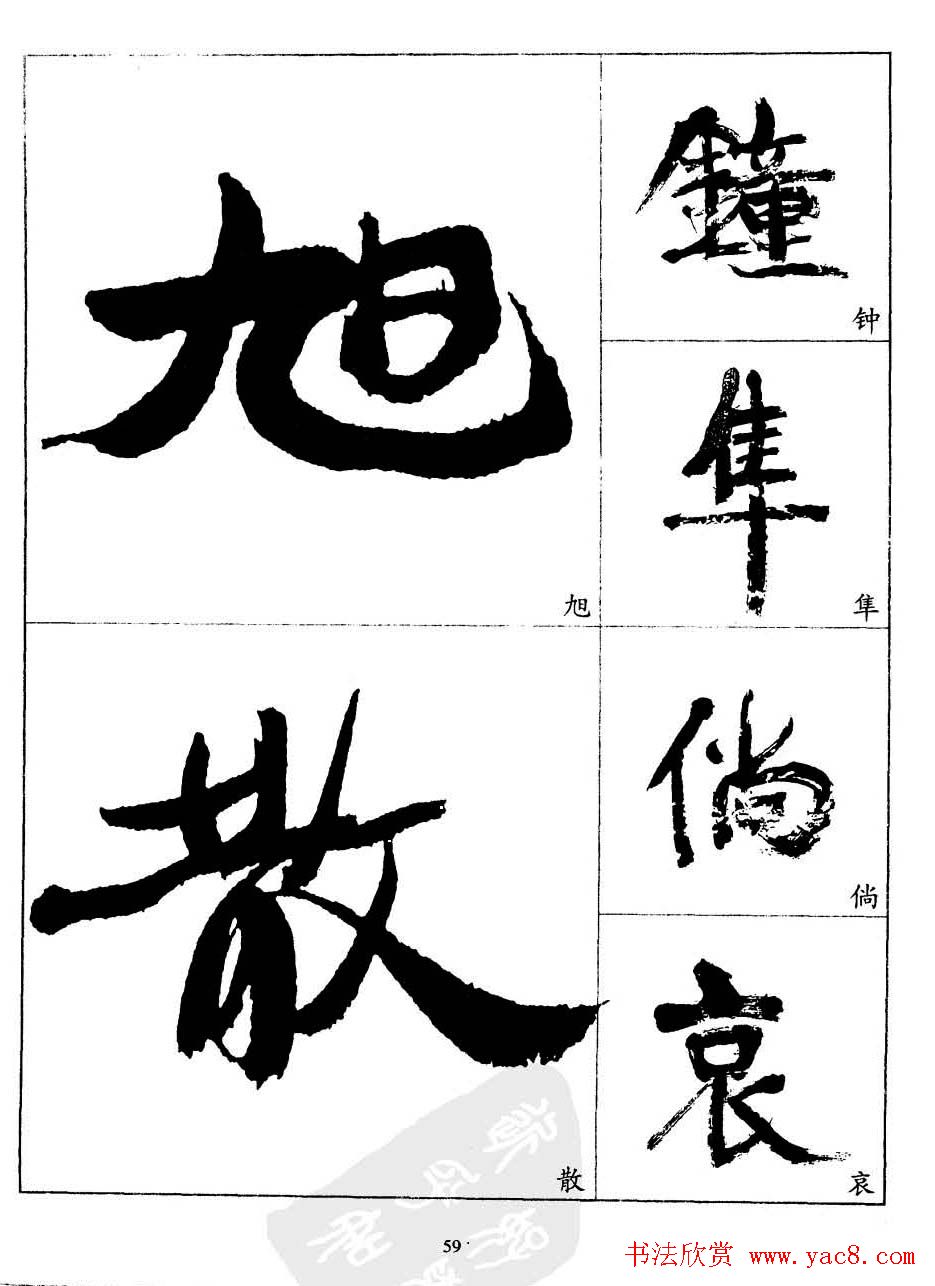 旭
旭
鐘
钟
隼
隼
倘
倘
散
散
哀
哀
59
书法欣赏 www.yac8.com